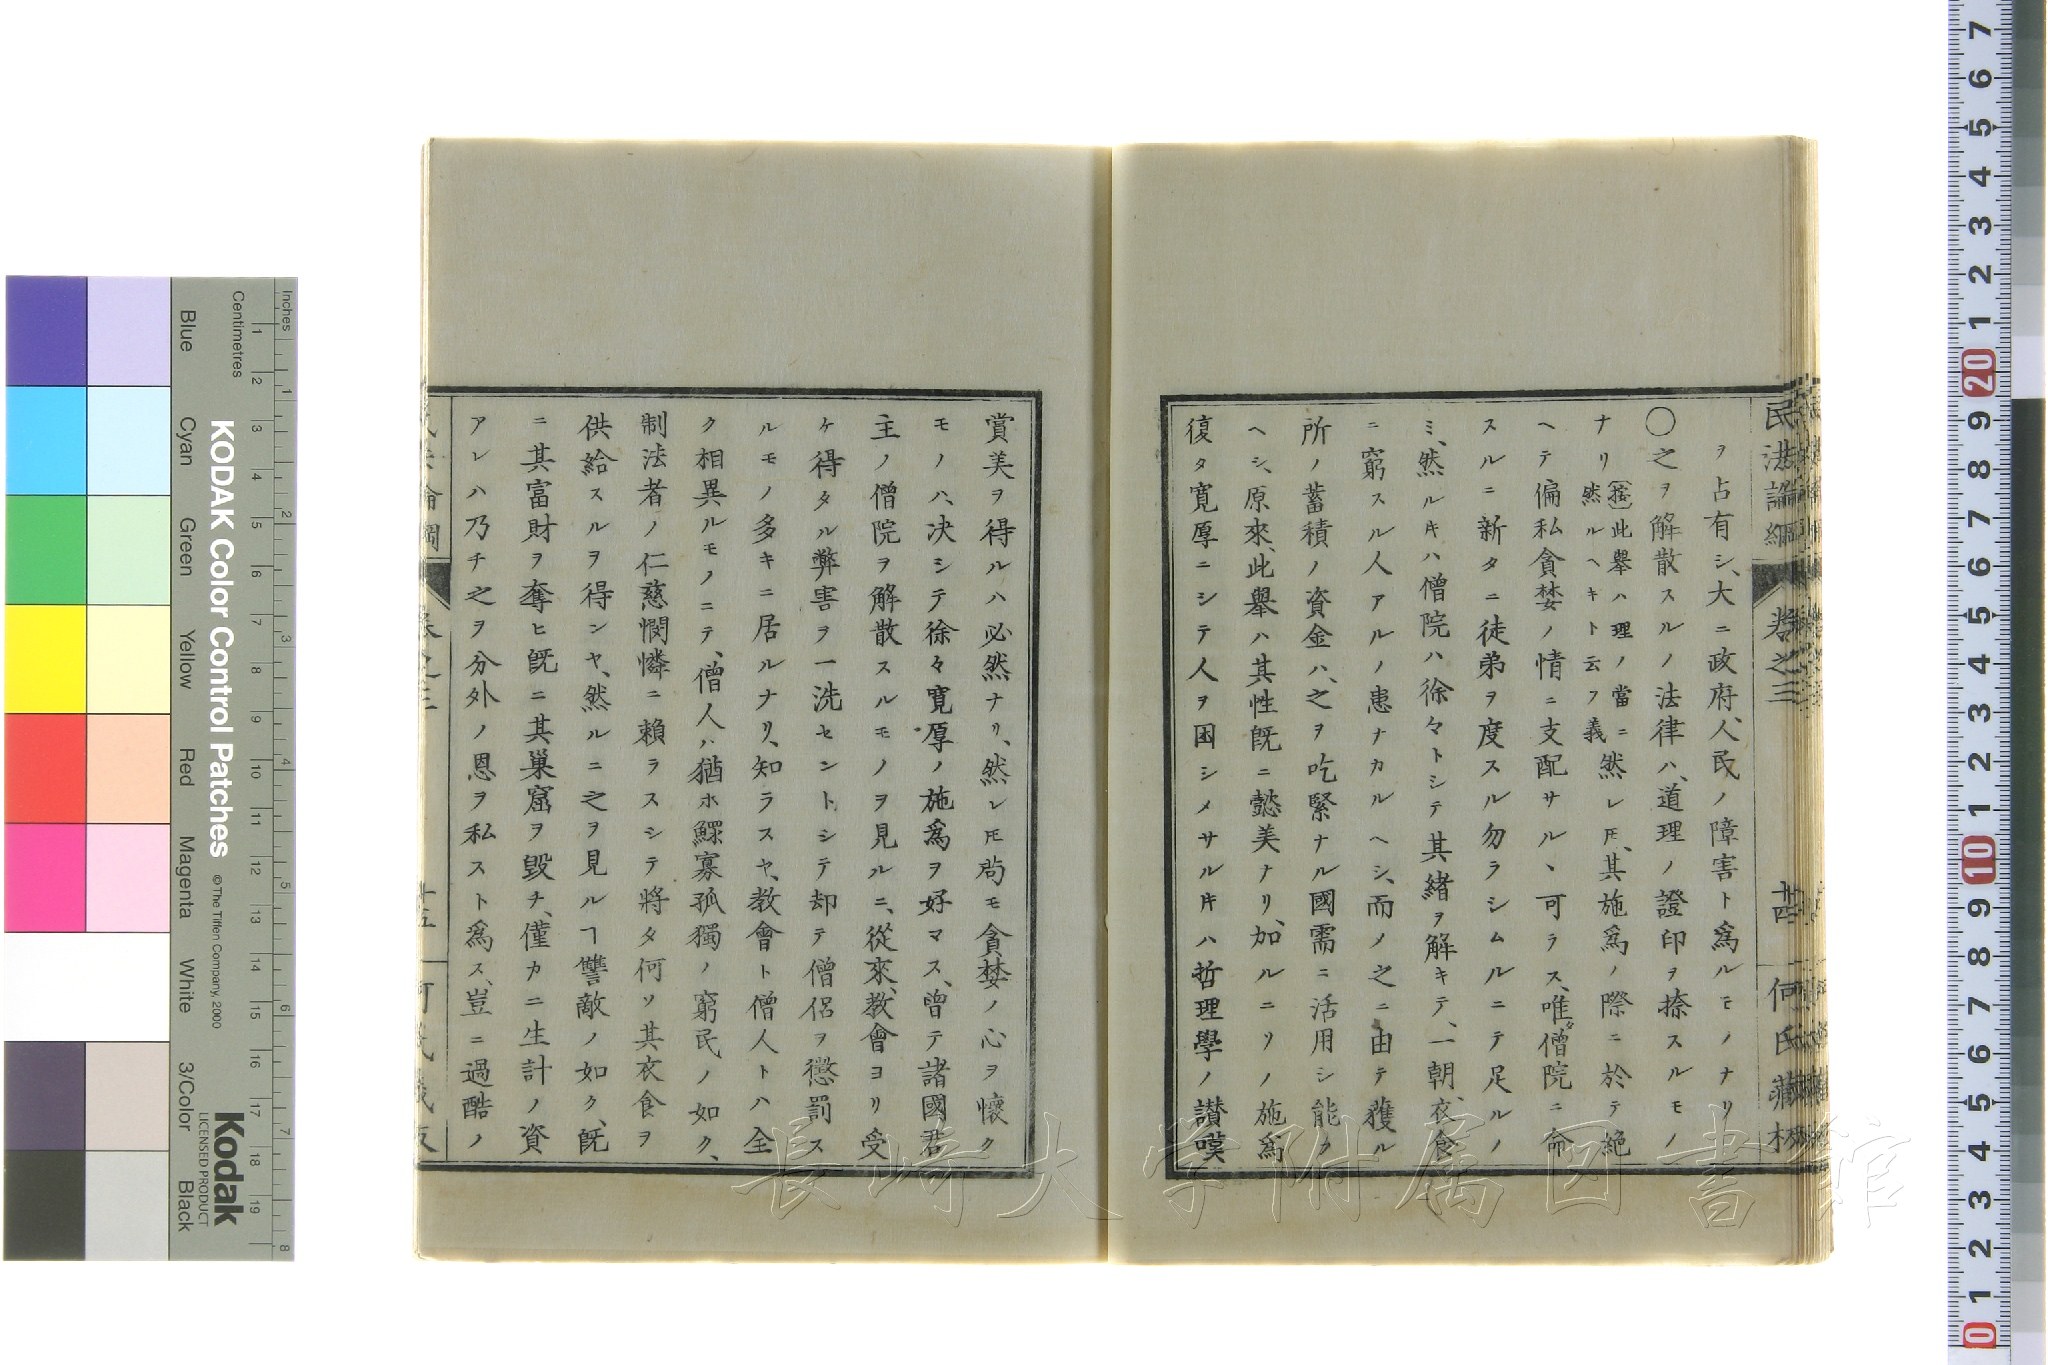 民法論綱 卷之三 十四 何氏藏板
ヲ占有シ、大ニ政府人民ノ障害ト爲ルモノナリ
〇之ヲ解散スルノ法律ハ、道理ノ證印ヲ捺スルモノ
ナリ(按)此擧ハ理ノ當ニ然ルヘキト云フ義然レ𪜈、其施爲ノ際ニ於テ絶
ヘテ偏私貪婪ノ情ニ支配サルヽ可ラス、唯僧院ニ命
スルニ新タニ徒弟ヲ度スル勿ラシムルニテ足ルノ
ミ、然ルキハ僧院ハ徐々トシテ其緒ヲ解キテ、一朝、衣食
ニ窮スル人アルノ患ナカルヘシ、而ノ之ニ由テ獲ル
所ノ蓄積ノ資金ハ、之ヲ吃緊ナル國需ニ活用シ能ク
ヘシ、原來、此擧ハ其性既ニ懿美ナリ、加ルニソノ施爲
復タ寛厚ニシテ人ヲ困シメサル片ハ哲理學ノ讃嘆
賞美ヲ得ルハ必然ナリ、然レ𪜈苟モ貪婪ノ心ヲ懷ク
モノハ、决シテ徐々寛厚ノ施爲ヲ好マス、曾テ諸國君
主ノ僧院ヲ解散スルモノヲ見ルニ、從來、教會ヨリ受
ケ得タル弊害ヲ一洗セントシテ却テ僧侶ヲ懲罰ス
ルモノ多キニ居ルナリ、知ラスヤ、教會ト僧人トハ全
ク相異ルモノニテ、僧人ハ猶ホ鰥寡孤獨ノ窮民ノ如ク、
制法者ノ仁慈憫憐ニ賴ラスシテ將タ何ソ其衣食ヲ
供給スルヲ得ンヤ、然ルニ之ヲ見ルヿ讐敵ノ如ク、既
ニ其富財ヲ奪ヒ既ニ其巢窟ヲ毀チ、僅カニ生計ノ資
アレハ乃チ之ヲ分外ノ恩ヲ私スト爲ス、豈ニ過酷ノ
長崎大学附属図書館
KODAK Color Control Patches
© The Tiffen Company, 2000
Kodak
LICENSED PRODUCT
Inches
Centimetres
Blue
Cyan
Green
Yellow
Red
Magenta
White
3/Color
Black